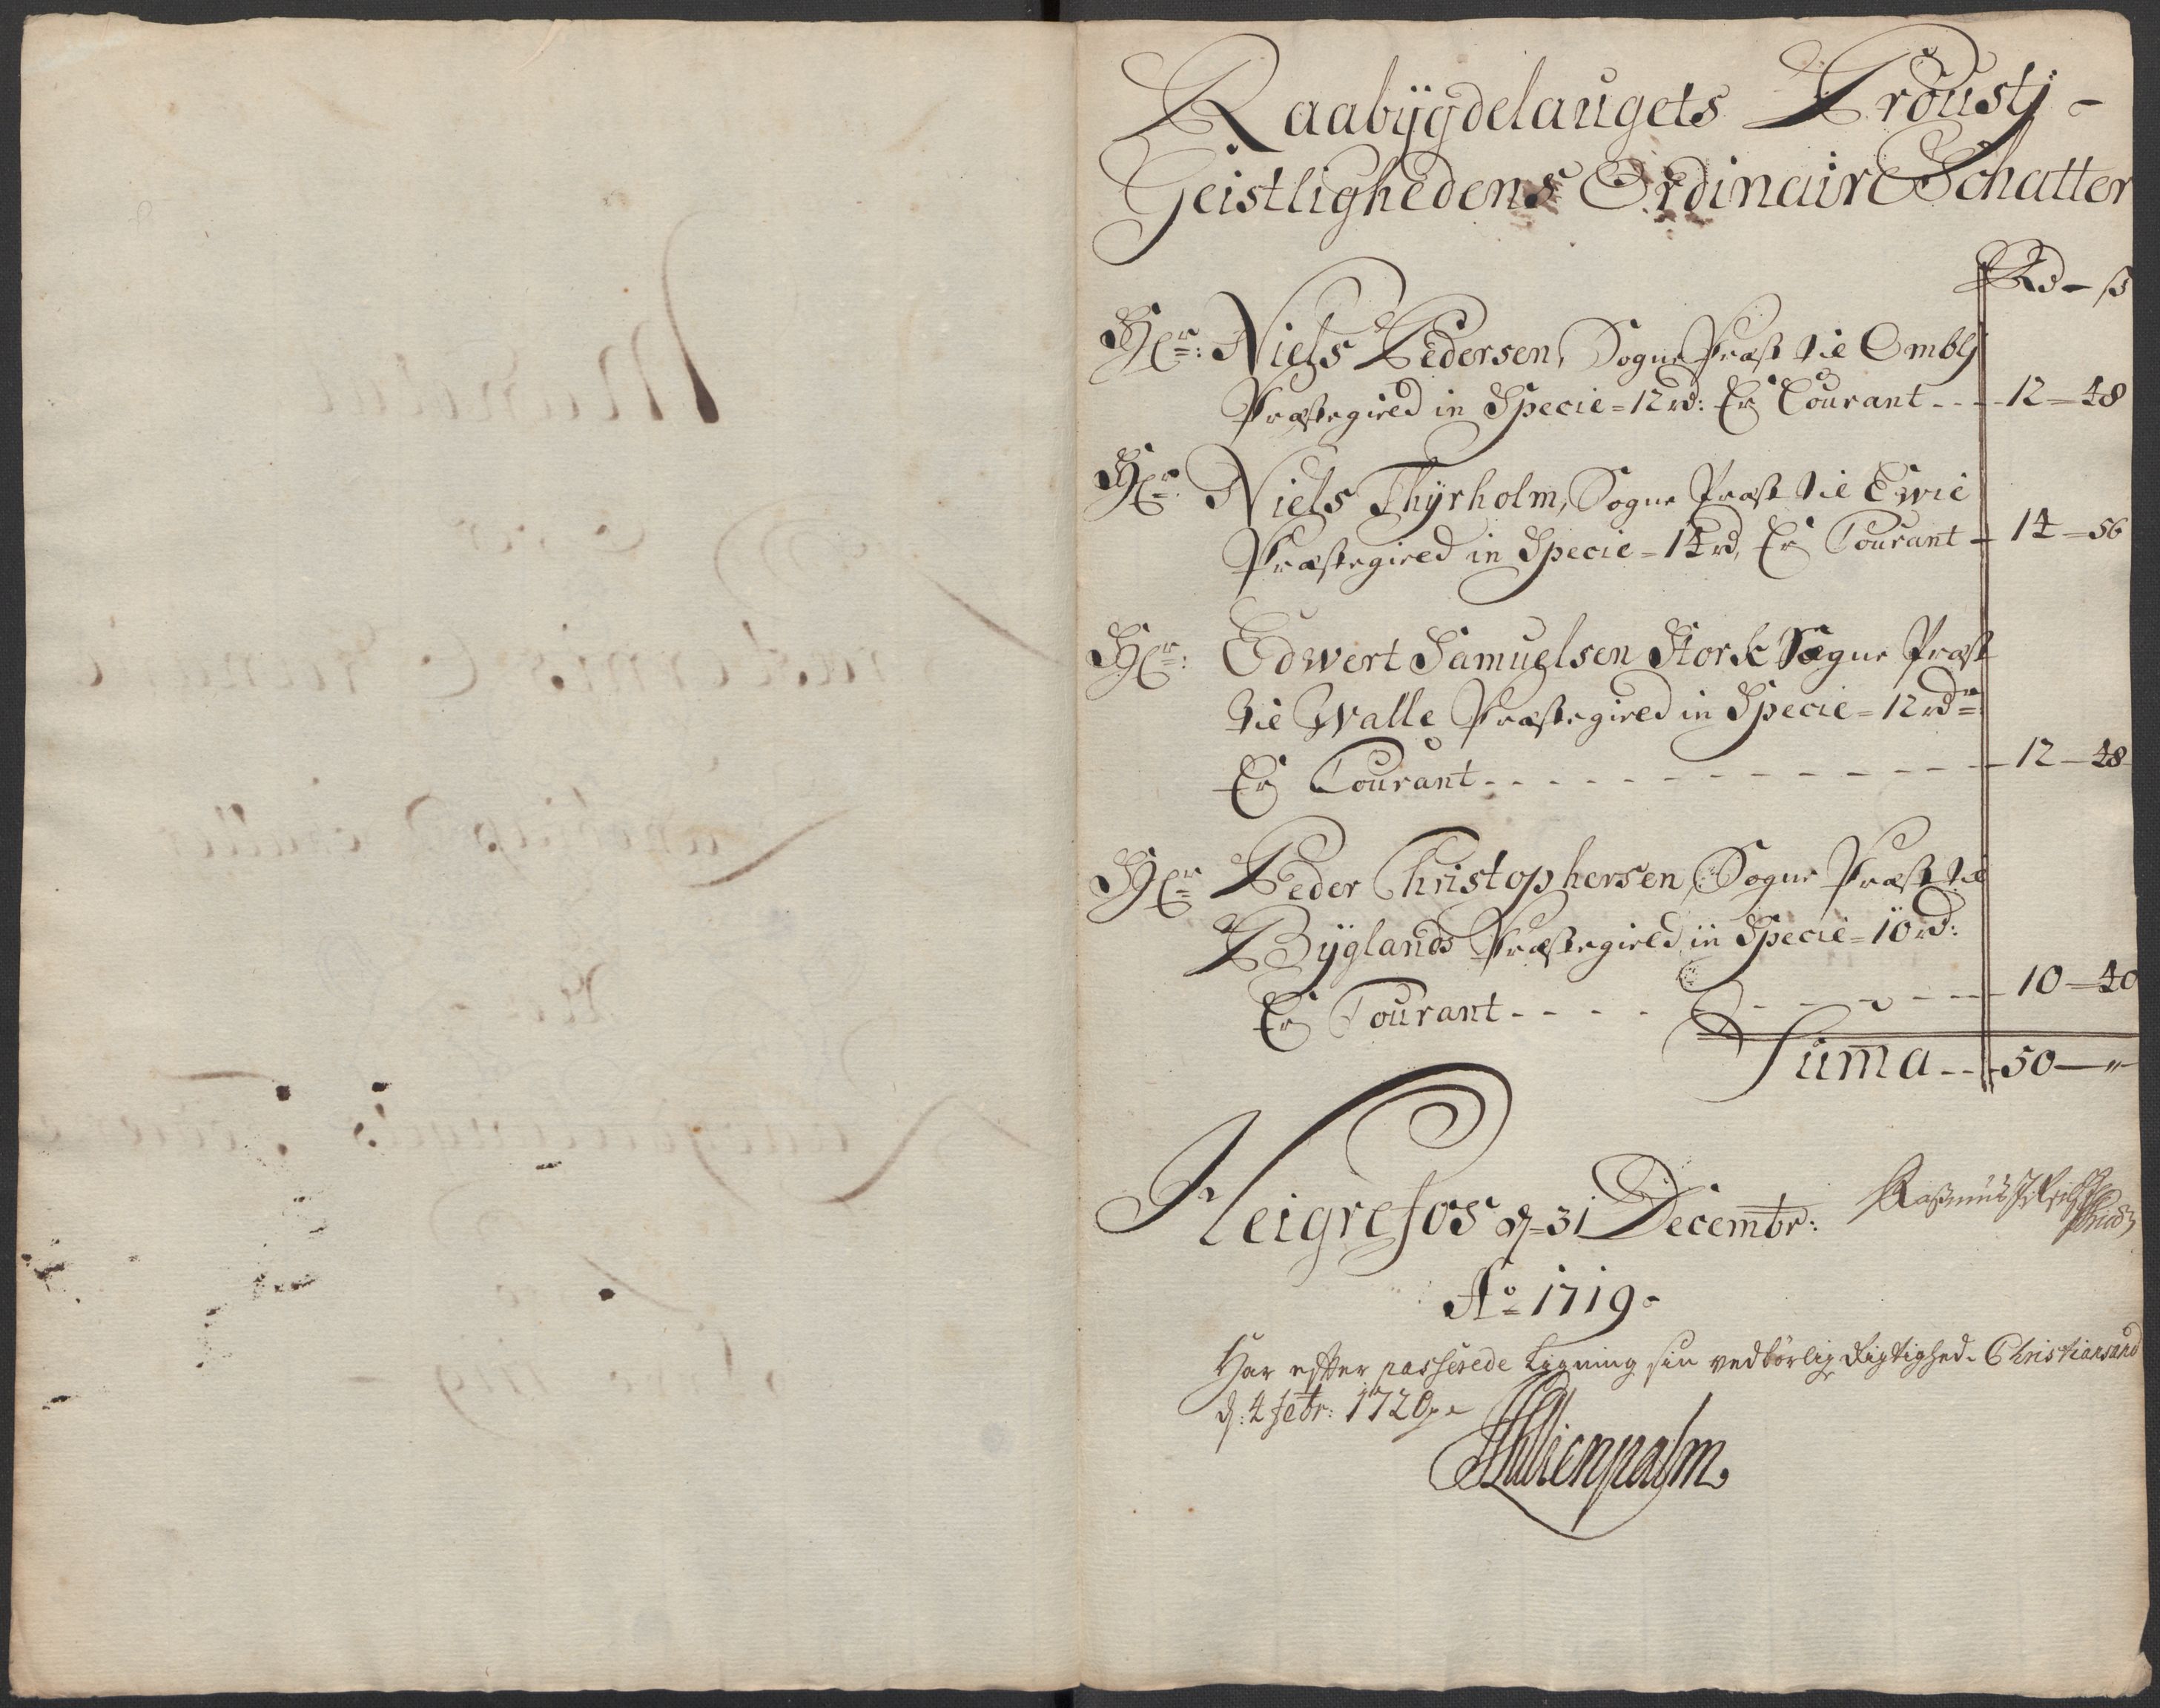 Raabÿgdelaugets Proustj -
Geistlighedens Ordinaire Schatter
Rd – ß
Hr: Niels Pedersen, Sogne Præst til Omblj
Præstegield in Specie = 12 rd: Er Courant - - - 12 – 48
Hr: Niels Thÿrholm, Sogne Præst til Ewie
Præstegield in Specie = 14 rd, Er Courant - 14 – 56
Hr: Edwert Samuelsen Stork Sogne Præst
til Walle Præstegield in Specie = 12 rdr
Er Courant - - - - - - - - - - - - 12 – 48
Hr Peder Christophersen, Sogne Præst til
Bÿglands Præstegield, in Specie = 10 rd:
Er Courant - - - - - - - - - - 10 – 40
Suma - - 50 – "
Heigrefos d 31 Decembr:
Ao 1719.
Har efter passerede Ligning sin vedbørlig Rigtighed. Christiansand
d: 4 Febr: 1720.